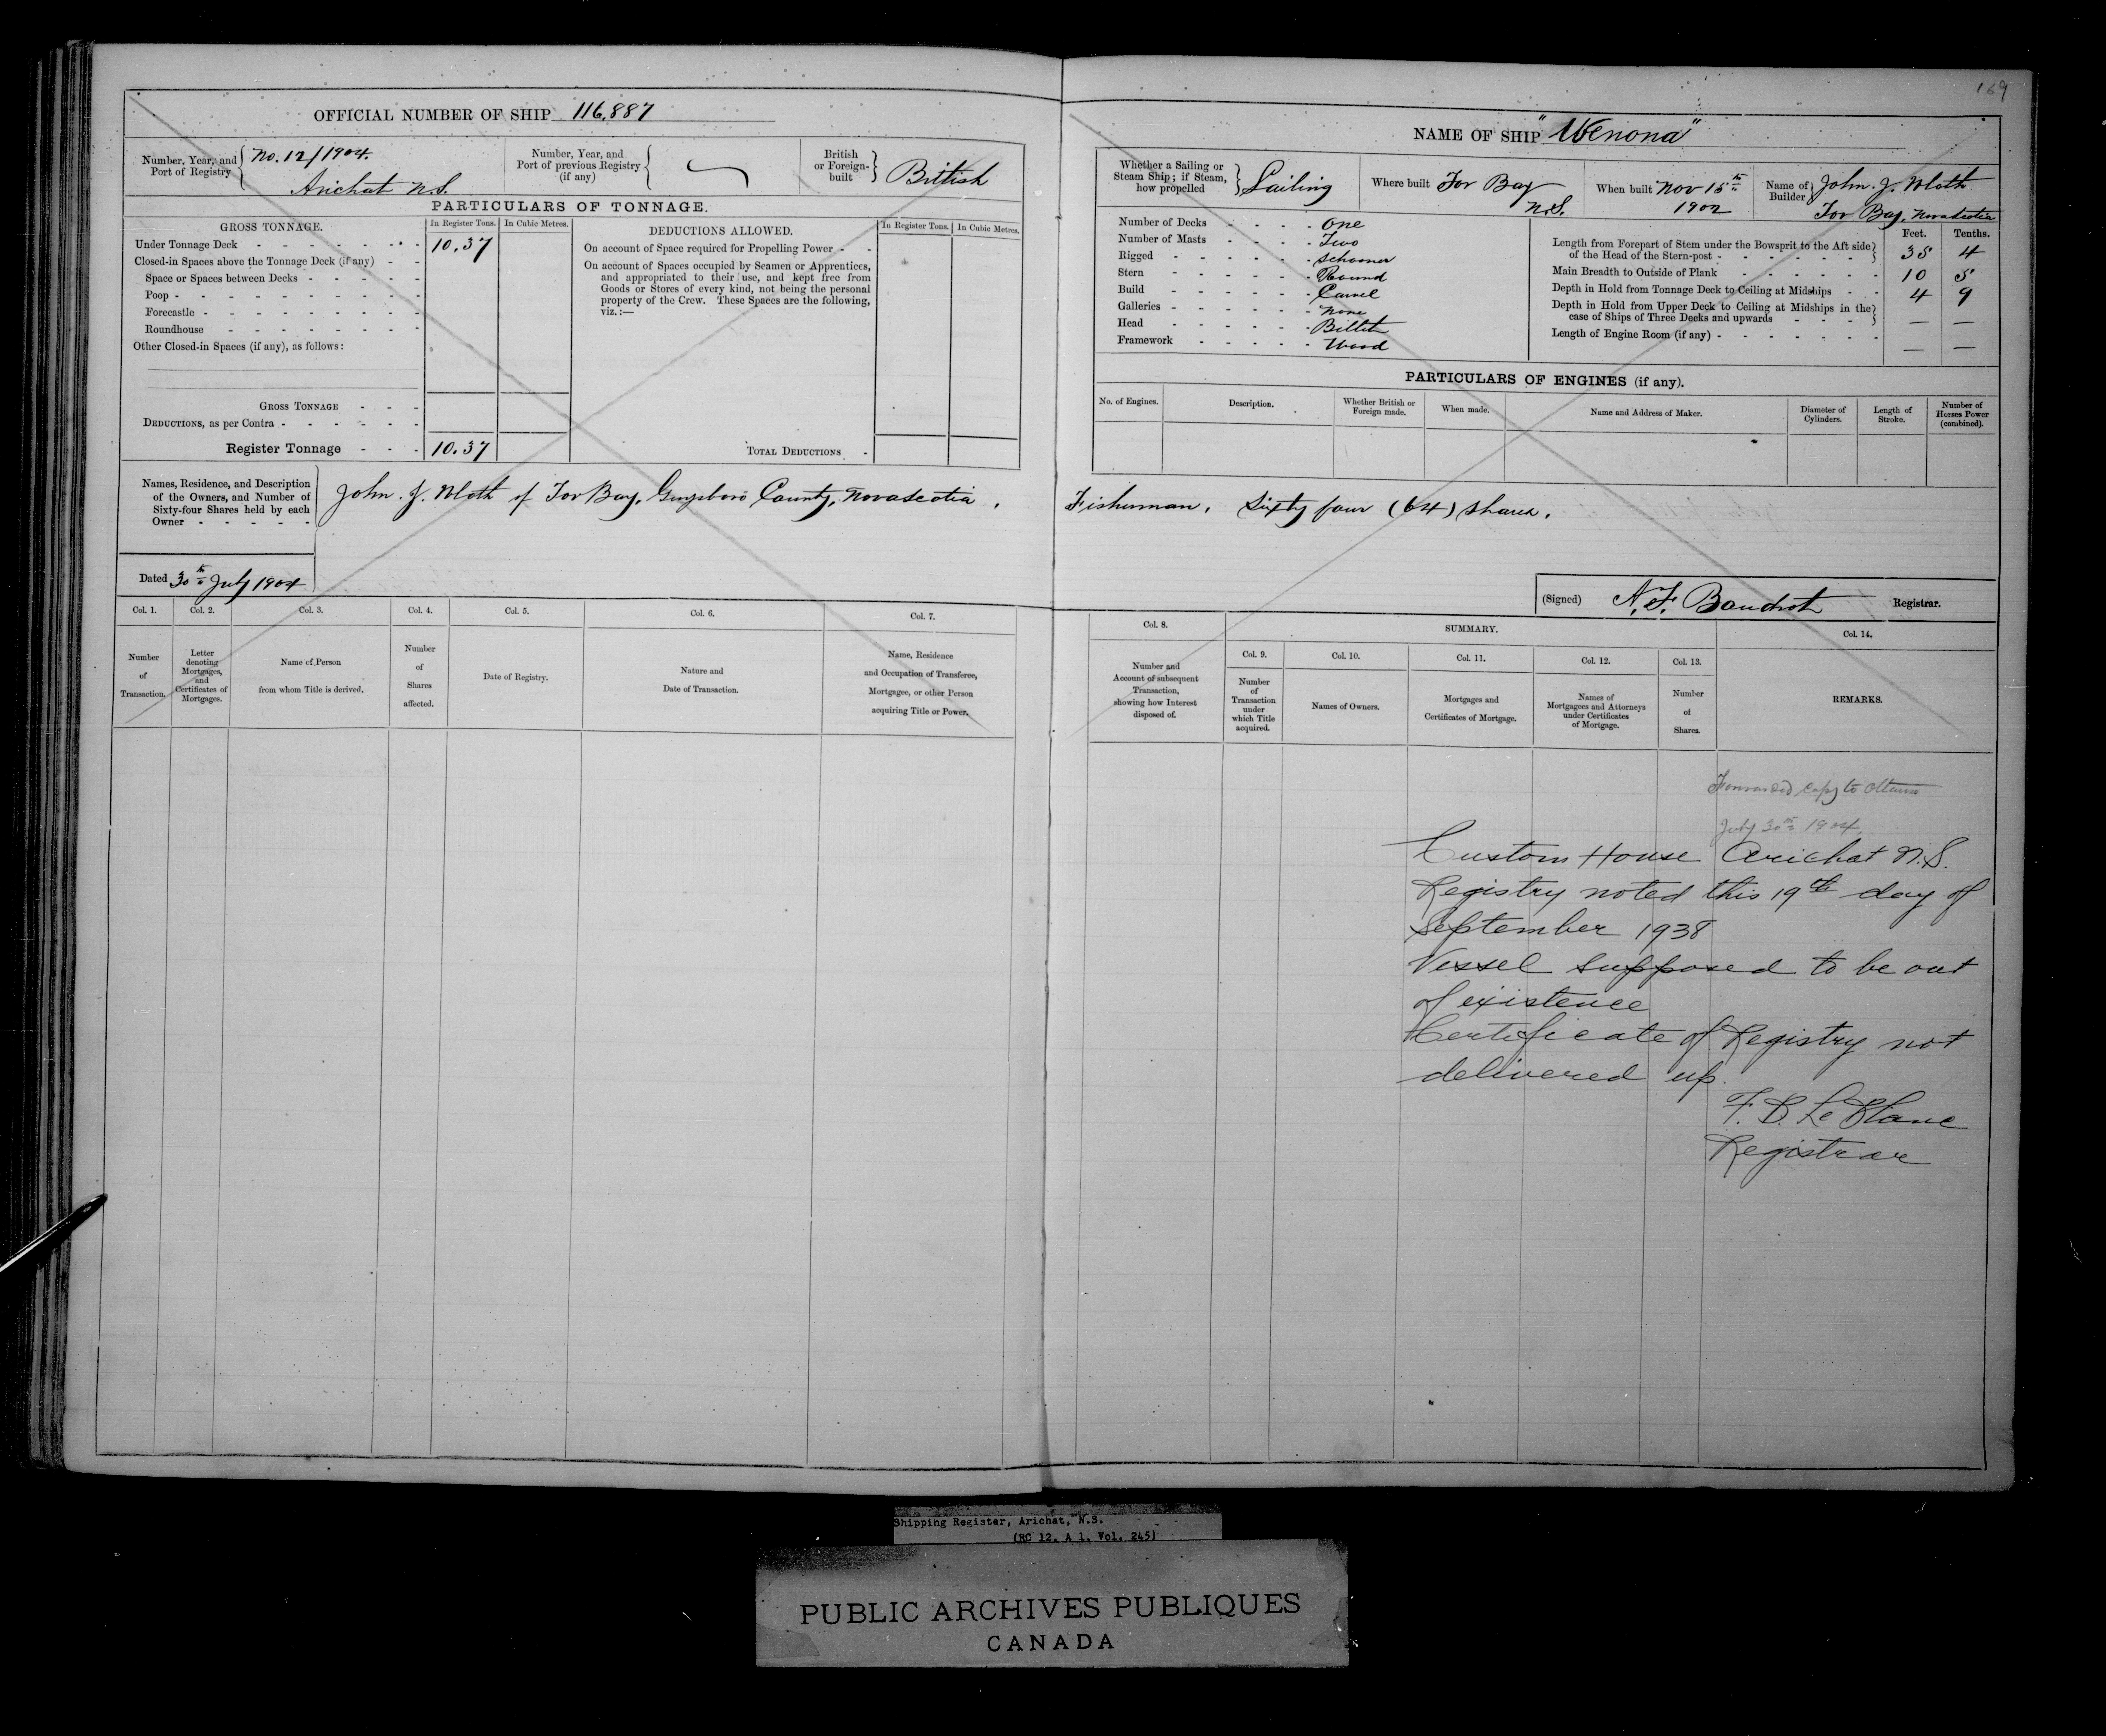 169
OFFICIAL NUMBER OF SHIP 116,887
Number, Year, and Port of Registry No. 12/1904. Arichat N.S.
Number, Year, and Port of previous Registry (if any)
British or Foreign-built British
PARTICULARS OF TONNAGE.
GROSS TONNAGE. In Register Tons. In Cubic Metres.
Under Tonnage Deck 10.37
Closed-in Spaces above the Tonnage Deck (if any)
Space or Spaces between Decks
Poop
Forecastle
Roundhouse
Other Closed-in Spaces (if any), as follows:
GROSS TONNAGE
DEDUCTIONS, as per Contra
Register Tonnage 10.37
DEDUCTIONS ALLOWED. In Register Tons. In Cubic Metres.
On account of Space required for Propelling Power
On account of Spaces occupied by Seamen or Apprentices,
and appropriated to their use, and kept free from
Goods or Stores of every kind, not being the personal
property of the Crew. These Spaces are the following,
viz.:—
TOTAL DEDUCTIONS
NAME OF SHIP "Wenona"
Whether a Sailing or Steam Ship; if Steam, how propelled Sailing
Where built Tor Bay N.S.
When built Nov 15th 1902
Name of Builder John. J. Tor Bay, Nova Scotia
Number of Decks One
Number of Masts Two
Rigged Schooner
Stern Round
Build Carvel
Galleries None
Head Billet
Framework Wood
Feet. Tenths.
Length from Forepart of Stem under the Bowsprit to the Aft side of the Head of the Stern-post 35 4
Main Breadth to Outside of Plank 10 5
Depth in Hold from Tonnage Deck to Ceiling at Midships 4 9
Depth in Hold from Upper Deck to Ceiling at Midships in the case of Ships of Three Decks and upwards — —
Length of Engine Room (if any) — —
PARTICULARS OF ENGINES (if any).
No. of Engines. Description. Whether British or Foreign made. When made. Name and Address of Maker. Diameter of Cylinders. Length of Stroke. Number of Horses Power (combined).
Names, Residence, and Description of the Owners, and Number of Sixty-four Shares held by each Owner
John. J. of Tor Bay, Guysboro County, Nova Scotia, Fisherman, Sixty four (64) shares.
Dated 30th July 1904
(Signed) Registrar.
Col. 1. Col. 2. Col. 3. Col. 4. Col. 5. Col. 6. Col. 7.
Number of Transaction.
Letter denoting Mortgages, and Certificates of Mortgages.
Name of Person from whom Title is derived.
Number of Shares affected.
Date of Registry.
Nature and Date of Transaction.
Name, Residence and Occupation of Transferee, Mortgagee, or other Person acquiring Title or Power.
Col. 8. SUMMARY. Col. 14.
Col. 9. Col. 10. Col. 11. Col. 12. Col. 13.
Number and Account of subsequent Transaction, showing how Interest disposed of.
Number of Transaction under which Title acquired.
Names of Owners.
Mortgages and Certificates of Mortgage.
Names of Mortgagees and Attorneys under Certificates of Mortgage.
Number of Shares.
REMARKS.
Forwarded copy to Ottawa
July 30th 1904.
Custom House Arichat N.S.
Registry noted this 19th day of
September 1938
Vessel supposed to be out
of existence
Certificate of Registry not
delivered up.
F. B. Le Blanc
Registrar
Shipping Register, Arichat, N.S.
(RG 12, A 1, Vol. 245)
PUBLIC ARCHIVES PUBLIQUES
CANADA